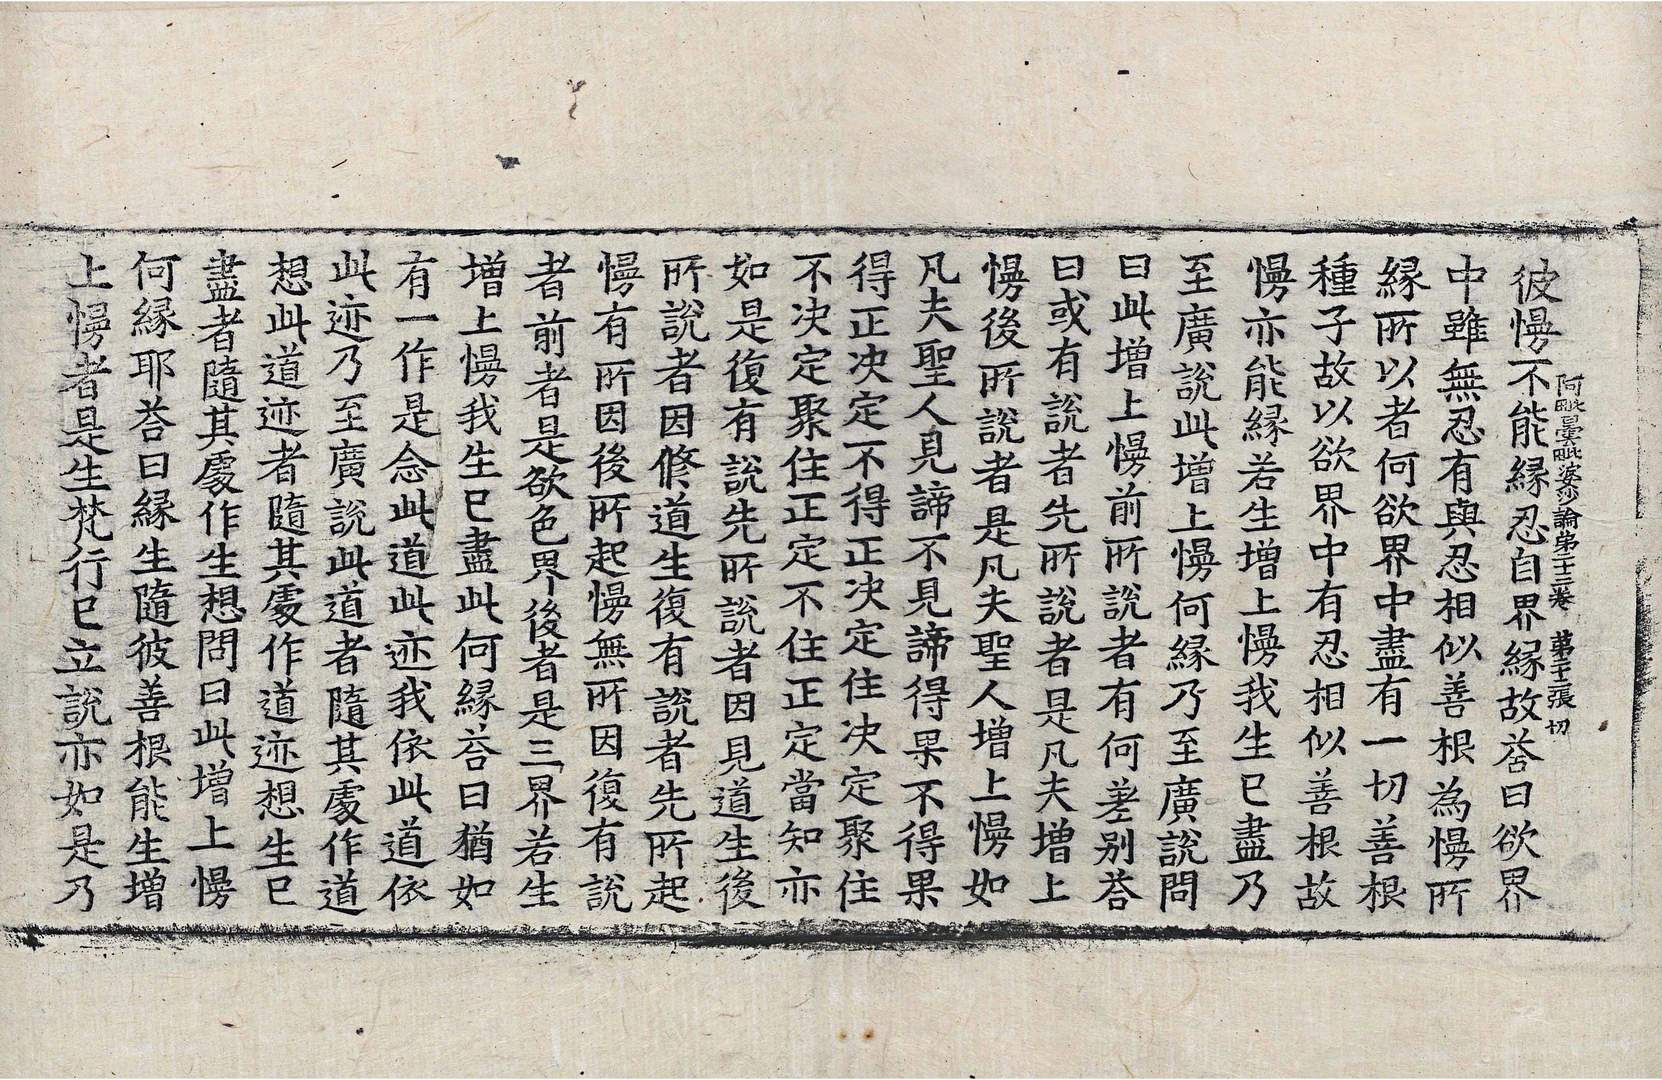 阿毗曇毗婆沙論第二十三卷 第 張 切
彼慢不能縁忍自界縁故荅曰欲界
中雖無忍有與忍相似善根為慢所
縁所以者何欲界中盡有一切善根
種子故以欲界中有忍相似善根故
慢亦能縁若生增上慢我生已盡乃
至廣說此增上慢何縁乃至廣說問
曰此增上慢前所說者有何差別荅
曰或有說者先所說者是凡夫增上
慢後所說者是凡夫聖人增上慢如
凡夫聖人見諦不見諦得果不得果
得正决定不得正决定住决定聚住
不决定聚住正定不住正定當知亦
如是復有說先所說者因見道生後
所說者因修道生復有說者先所起
慢有所因後所起慢無所因復有說
者前者是欲色界後者是三界若生
增上慢我生已盡此何縁荅曰猶如
有一作是念此道此迹我依此道依
此迹乃至廣說此道者隨其處作道
想此道迹者隨其處作道迹想生已
盡者隨其處作生想問曰此增上慢
何縁耶荅曰縁生隨彼善根能生增
上慢者是生梵行已立說亦如是乃